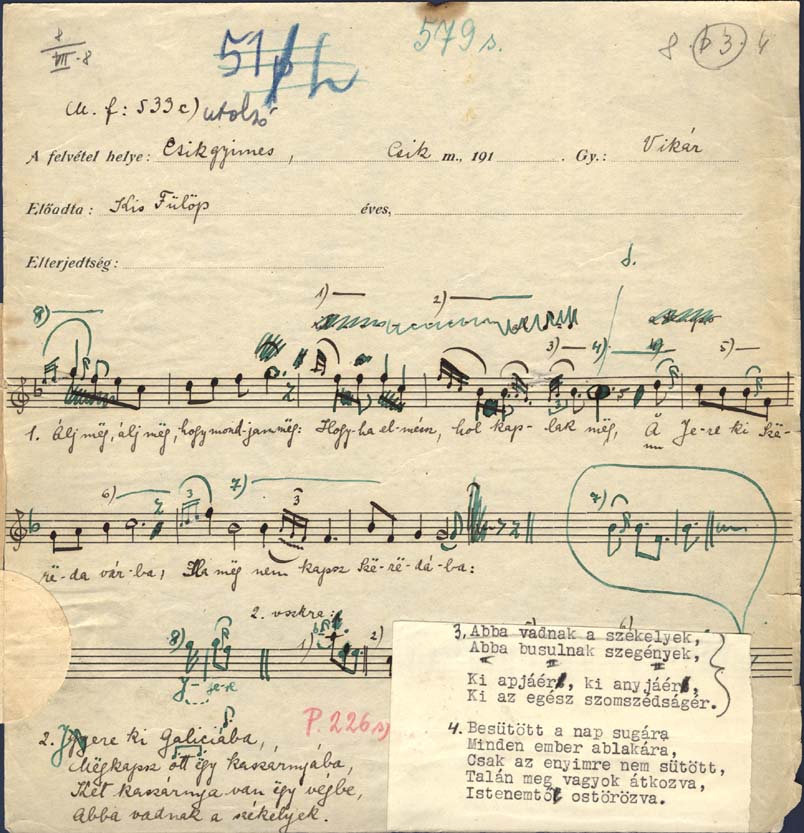 8
VII.8
51
579 s.
8 b 3. 4
M. f: 539 c) utolsó
A felvétel helye: Csikgyimes, Csik m., 191 . Gy.: Vikár
Előadta: Kis Fülöp éves,
Elterjedtség:
8)
1) 2)
3) 4) 5)
1. Álj mëg, álj mëg, hogy mond-jam mëg: Hogy-ha el-mész, hol kap-lak mëg, Ă Je-re ki Szë-
6) 3 7) 3
rë-da vár-ba, Ha mëg nem kapsz Szë-rë-dá-ba:
7)
2. vszkra:
8) 1) 2)
J - je-re
P. 226 s)
2. Jgyere ki Galiciába,
Mëgkapsz ott ëgy kaszárnyába,
Két kaszárnya van ëgy végbe,
Abba vadnak a székelyek.
3. Abba vadnak a székelyek,
Abba busulnak szegények,
Ki apjáér, ki anyjáér,
Ki az egész szomszédságér.
4. Besütött a nap sugára
Minden ember ablakára,
Csak az enyimre nem sütött,
Talán meg vagyok átkozva,
Istenemtől ostörözva.